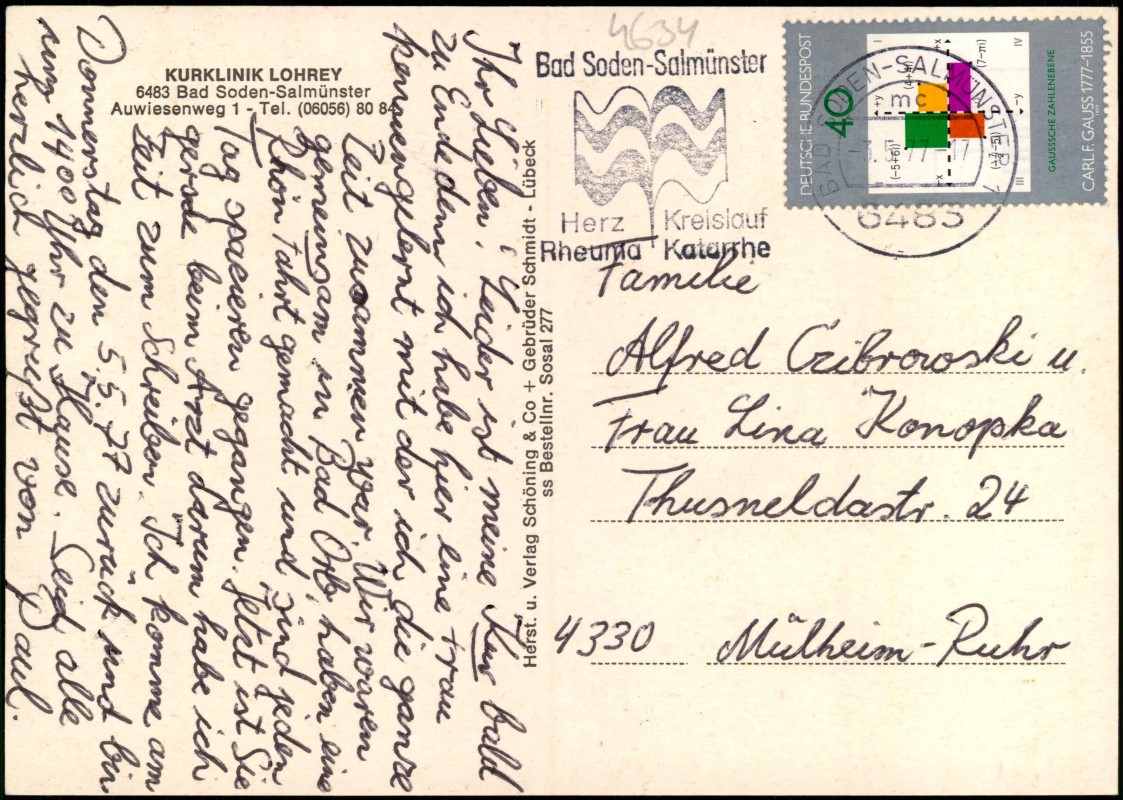 KURKLINIK LOHREY
6483 Bad Soden-Salmünster
Auwiesenweg 1 - Tel. (06056) 80 84
Ihr Lieben, Leider ist meine Kur bald
zu Ende, denn ich habe hier eine Frau
kennengelernt mit der ich die ganze
Zeit zusammen war. Wir waren
gemeinsam in Bad Orb, haben eine
Fahrt gemacht und sind jeden
Tag spazieren gegangen. Jetzt ist Sie
gerade beim Arzt darum habe ich
Zeit zum Schreiben. Ich komme am
Donnerstag den 5.5.77 zurück und bin
um 1400 Uhr zu Hause. Seid alle
herzlich gegrüßt von
Paul.
Herst. u. Verlag Schöning & Co + Gebrüder Schmidt - Lübeck
ss Bestellnr. Sosal 277
4634
Bad Soden-Salmünster
Herz Kreislauf
Rheuma Katarrhe
BAD SODEN-SALMÜNSTER 1
mc
77-17
6483
DEUTSCHE BUNDESPOST
40
GAUSSSCHE ZAHLENEBENE
CARL F. GAUSS 1777-1855
I
III
IV
+x
+y
-x
-y
(-5+6i)
(7-πi)
Familie
Alfred Czibrowski u.
Frau Lina Konopka
Thusneldastr. 24
4330 Mülheim-Ruhr